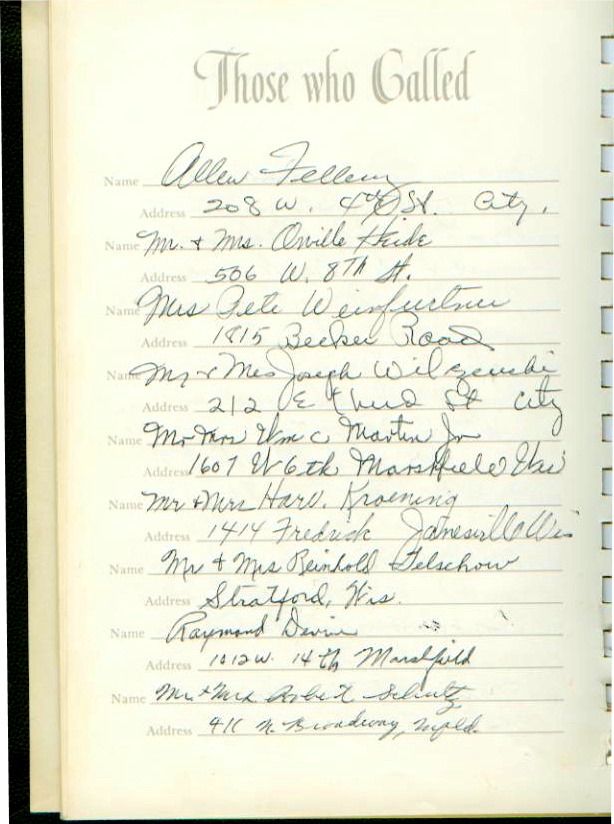 Those who Called
Name Allen
Address 208 W. 4th St. City.
Name Mr. & Mrs. Orville Heide
Address 506 W. 8th St.
Name Mrs Pete Weinfurtner
Address 1815 Becker Road
Name Mr & Mrs Joseph
Address 212 E Third St City
Name Mr Mrs Wm C Martin Jr
Address 1607 W 6th Marshfield Wis
Name Mr & Mrs Harv. Kroening
Address 1414 Fredrick Janesville Wis
Name Mr & Mrs Reinhold Telschow
Address Stratford, Wis.
Name Raymond Devine
Address 1012 W. 14th Marshfield
Name Mr. & Mrs Schultz
Address 411 N. Broadway, Mfld.